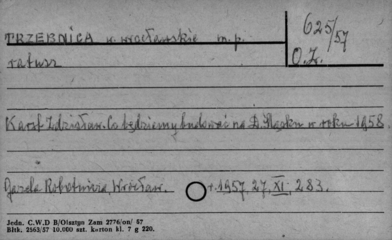 TRZEBNICA w. wrocławskie m.p.
625/57
ratusz
O.Z.
Karst Zdzisław. Co będziemy budować na D. Śląsku w roku 1958
Gazeta Robotnicza, Wrocław. + 1957, 27. XI, 283.
Jedn. C.W.D B/Olsztyn Zam 2776/on/ 57
Bltk. 2563/57 10.000 szt. karton kl. 7 g 220.